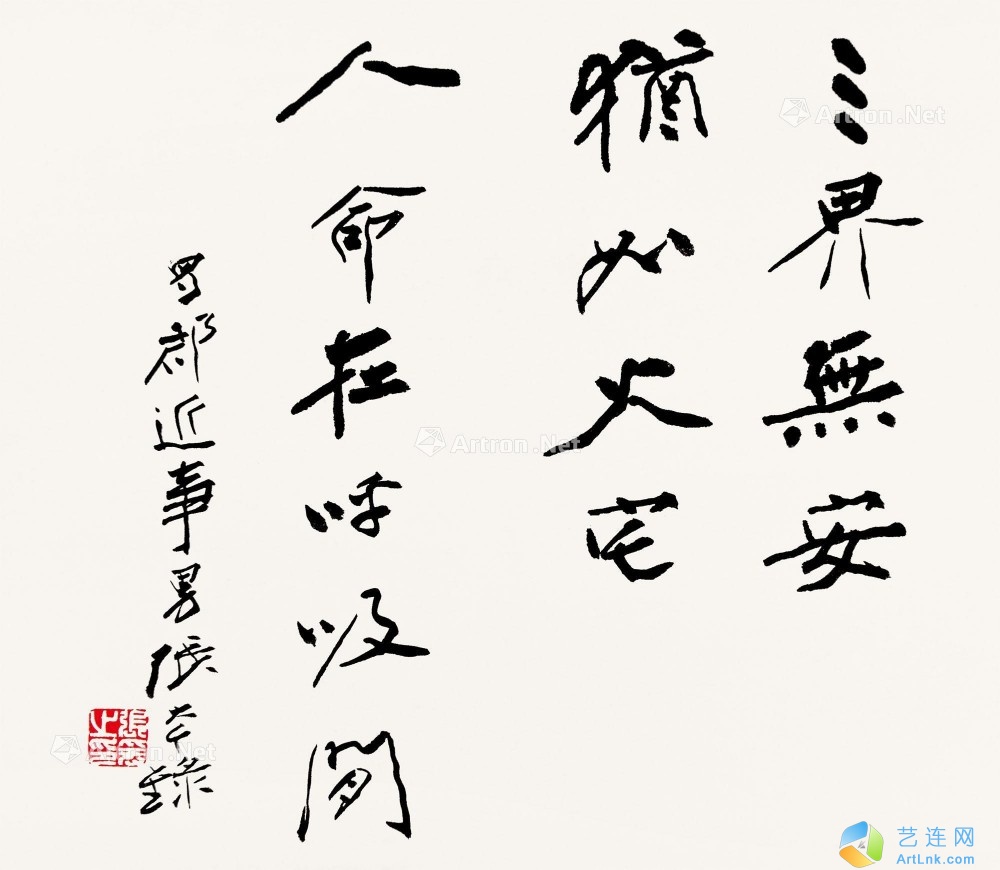 三界無安
猶如火宅
人命在呼吸間
蜀郡近事男張大千錄
張爰之印
Artron.Net
Artron.Net
Artron.Net
艺连网
ArtLnk.com